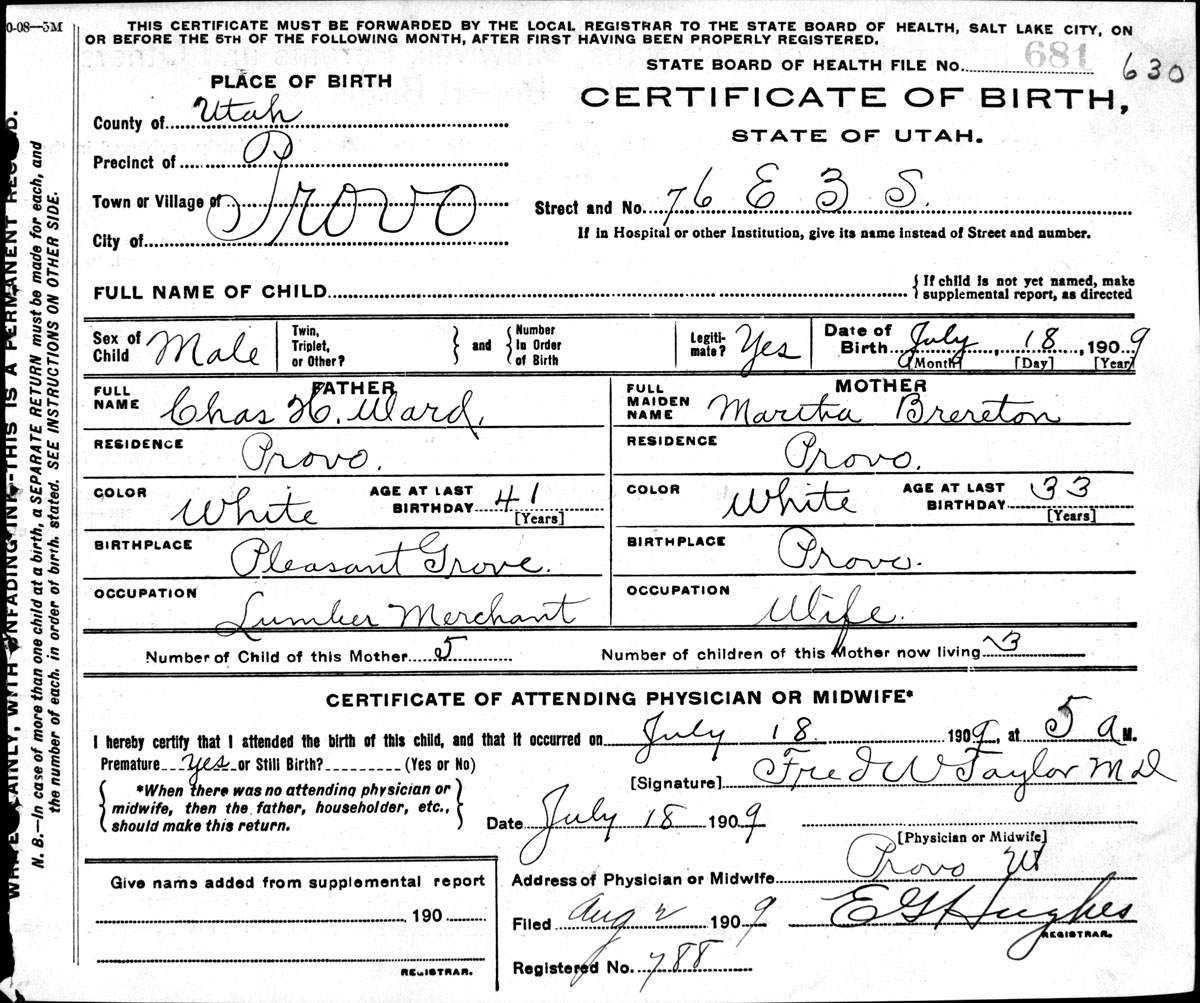 0-08—5M
THIS CERTIFICATE MUST BE FORWARDED BY THE LOCAL REGISTRAR TO THE STATE BOARD OF HEALTH, SALT LAKE CITY, ON
OR BEFORE THE 5TH OF THE FOLLOWING MONTH, AFTER FIRST HAVING BEEN PROPERLY REGISTERED.
STATE BOARD OF HEALTH FILE No. 681 630
PLACE OF BIRTH
CERTIFICATE OF BIRTH,
STATE OF UTAH.
County of Utah
Precinct of
Town or Village of
City of Provo
Street and No. 76 E 3 S.
If in Hospital or other Institution, give its name instead of Street and number.
FULL NAME OF CHILD
{ If child is not yet named, make
supplemental report, as directed
Sex of Child Male
Twin, Triplet, or Other? } and { Number In Order of Birth
Legiti-mate? Yes
Date of Birth July, 18, 1909
[Month] [Day] [Year]
FATHER
FULL NAME Chas H. Ward.
RESIDENCE Provo.
COLOR White AGE AT LAST BIRTHDAY 41
[Years]
BIRTHPLACE Pleasant Grove.
OCCUPATION Lumber Merchant
MOTHER
FULL MAIDEN NAME Martha Brereton
RESIDENCE Provo.
COLOR White AGE AT LAST BIRTHDAY 33
[Years]
BIRTHPLACE Provo.
OCCUPATION Wife.
Number of Child of this Mother 5 Number of children of this Mother now living 3
CERTIFICATE OF ATTENDING PHYSICIAN OR MIDWIFE*
I hereby certify that I attended the birth of this child, and that it occurred on July 18 1909, at 5 A M.
Premature Yes or Still Birth? (Yes or No)
[Signature] Fred W Taylor M D
{ *When there was no attending physician or
midwife, then the father, householder, etc.,
should make this return. }
Date July 18 1909
[Physician or Midwife]
Address of Physician or Midwife Provo Ut
Filed Aug 2 1909 E G Hughes
REGISTRAR.
Registered No. 788
Give name added from supplemental report
190
REGISTRAR.
PLAINLY, WITH UNFADING INK—THIS IS A PERMANENT
N. B.—In case of more than one child at a birth, a SEPARATE RETURN must be made for each, and
the number of each, in order of birth, stated. SEE INSTRUCTIONS ON OTHER SIDE.